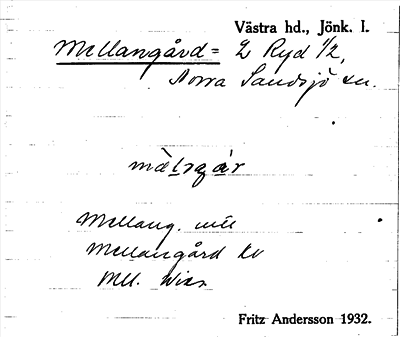 Västra hd., Jönk. l.
Mellangård = 2 Ryd 1/2,
Norra Sandsjö sn.
Mellang.
Mellangård
Mell.
Fritz Andersson 1932.